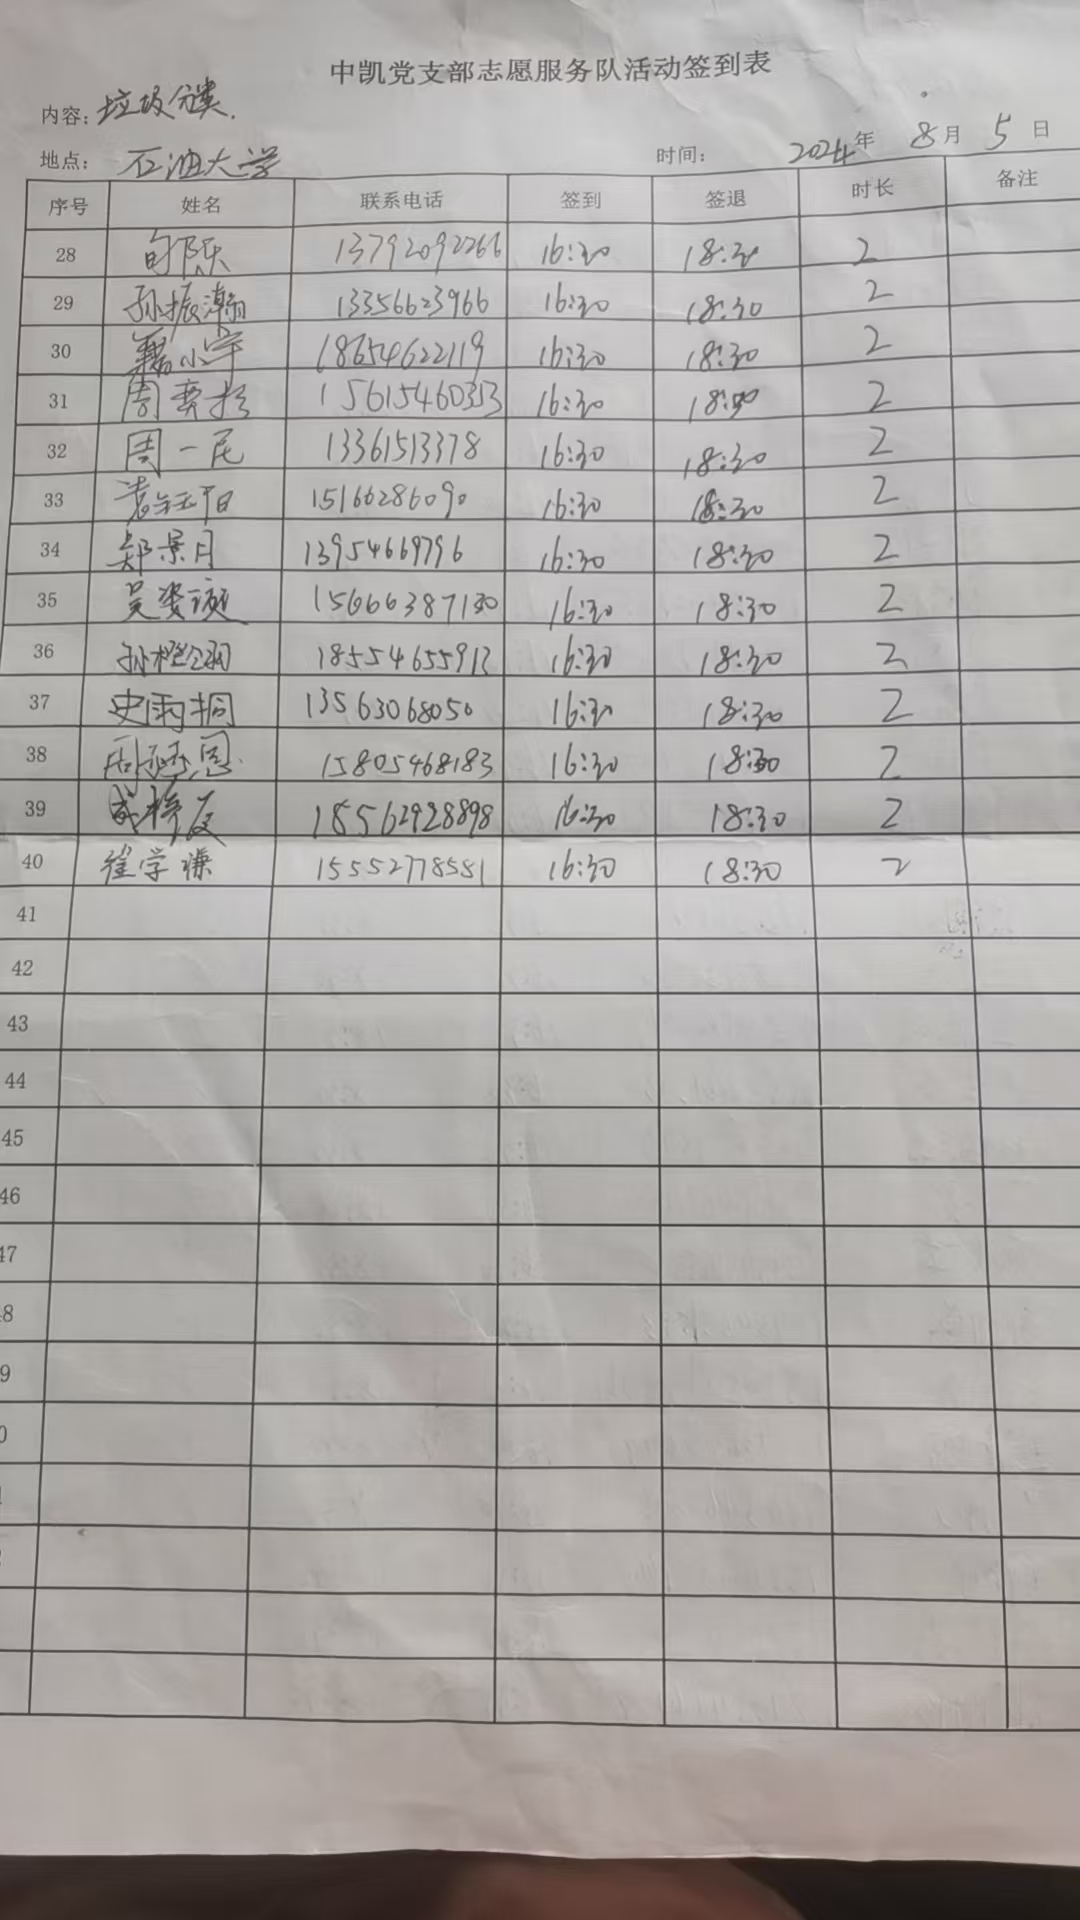 中凯党支部志愿服务队活动签到表
内容: 垃圾分类.
地点: 石油大学 时间: 2024年 8月 5日
序号 姓名 联系电话 签到 签退 时长 备注
28 13792092266 16:30 18:30 2
29 孙振瀚 13356623966 16:30 18:30 2
30 小宇 18654622119 16:30 18:30 2
31 周奕杉 15615460353 16:30 18:30 2
32 周一尼 13361513378 16:30 18:30 2
33 15166286090 16:30 18:30 2
34 郑景月 13954669796 16:30 18:30 2
35 15666387130 16:30 18:30 2
36 18554655913 16:30 18:30 2
37 史雨桐 13563068050 16:30 18:30 2
38 15805468183 16:30 18:30 2
39 成梓 18562928898 16:30 18:30 2
40 崔学谦 15552778581 16:30 18:30 2
41
42
43
44
45
46
47